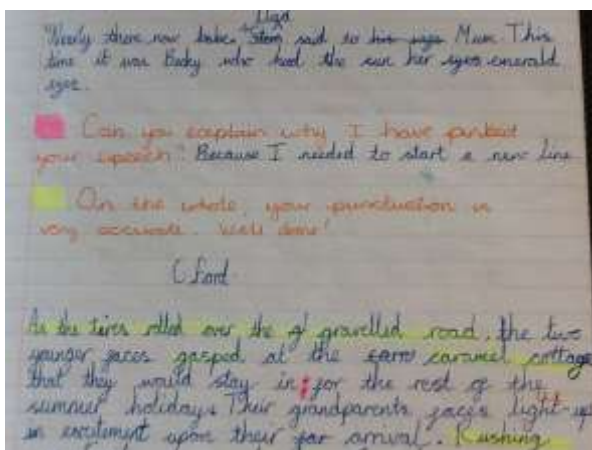 Dad
"Nearly there now babe." said to his Mum. This
time it was Becky who had the sun her eyes emerald
eyes.
Can you explain why I have pinked
your speech? Because I needed to start a new line
On the whole, your punctuation is
very accurate. Well done!
As the tires rolled over the gravelled road, the two
younger faces gasped at the caramel cottage
that they would stay in; for the rest of the
summer holidays. Their grandparents faces light-up
in excitement upon their far arrival. Rushing